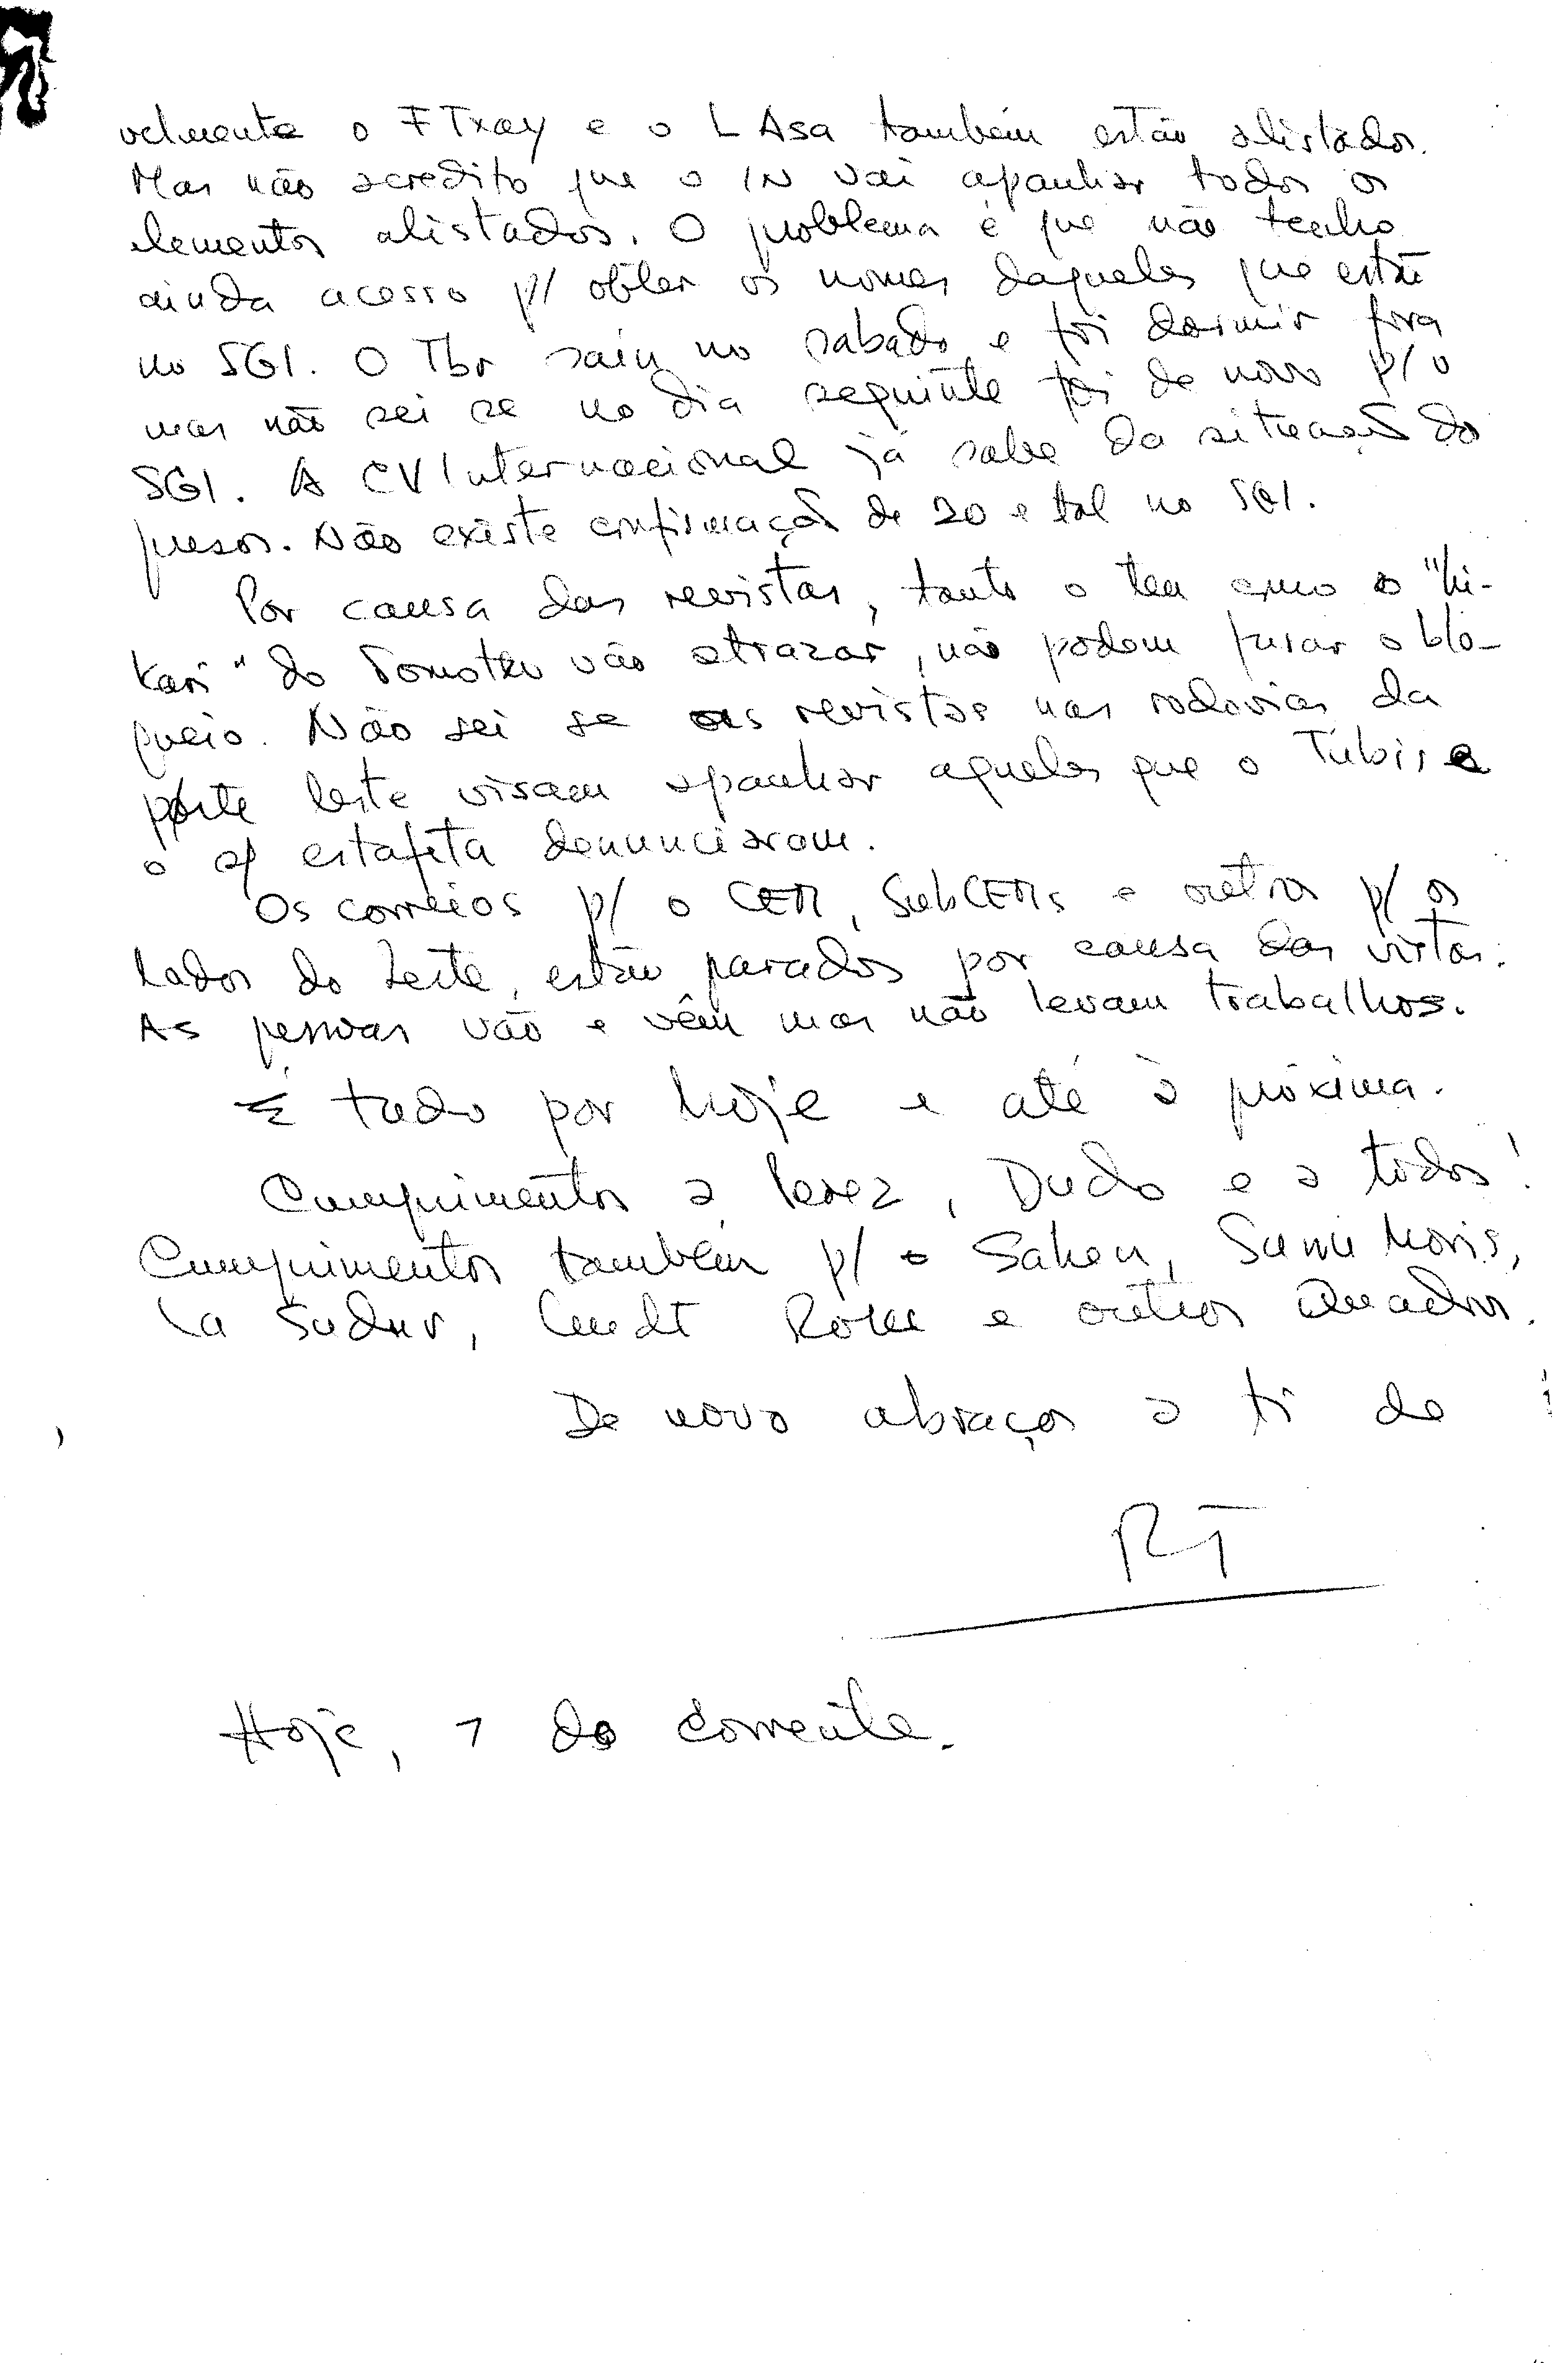 velmente o FTxay e o LAsa também estão alistados.
Mas não acredito que o IN vai apanhar todos os
elementos alistados. O problema é que não tenho
ainda acesso p/ obter os nomes daqueles que estão
no SGI. O Tbr saiu no sabado e foi dormir fora
mas não sei se no dia seguinte foi de novo p/ o
SGI. A CVInternacional já sabe da situação do
presos. Não existe confirmação de 20 e tal no SGI.
Por causa das revistas, tanto o teu como o "hi-
kari" do vão atrazar, não podem furar o blo-
queio. Não sei se as revistas nas rodovias da
parte leste visam apanhar aqueles que o Tubis e
o estafeta denunciaram.
Os correios p/ o CEM, SubCEMs e outros p/ os
lados do Leste, estão parados por causa das vistas.
As pessoas vão e vêm mas não levam trabalhos.
É tudo por hoje e até à próxima.
Cumprimentos a Perez, Dudo e a todos!
Cumprimentos também p/ o Saken,
La Sudur, e outros Quadros.
De novo abraços a ti do
RT
Hoje, 7 do corrente.